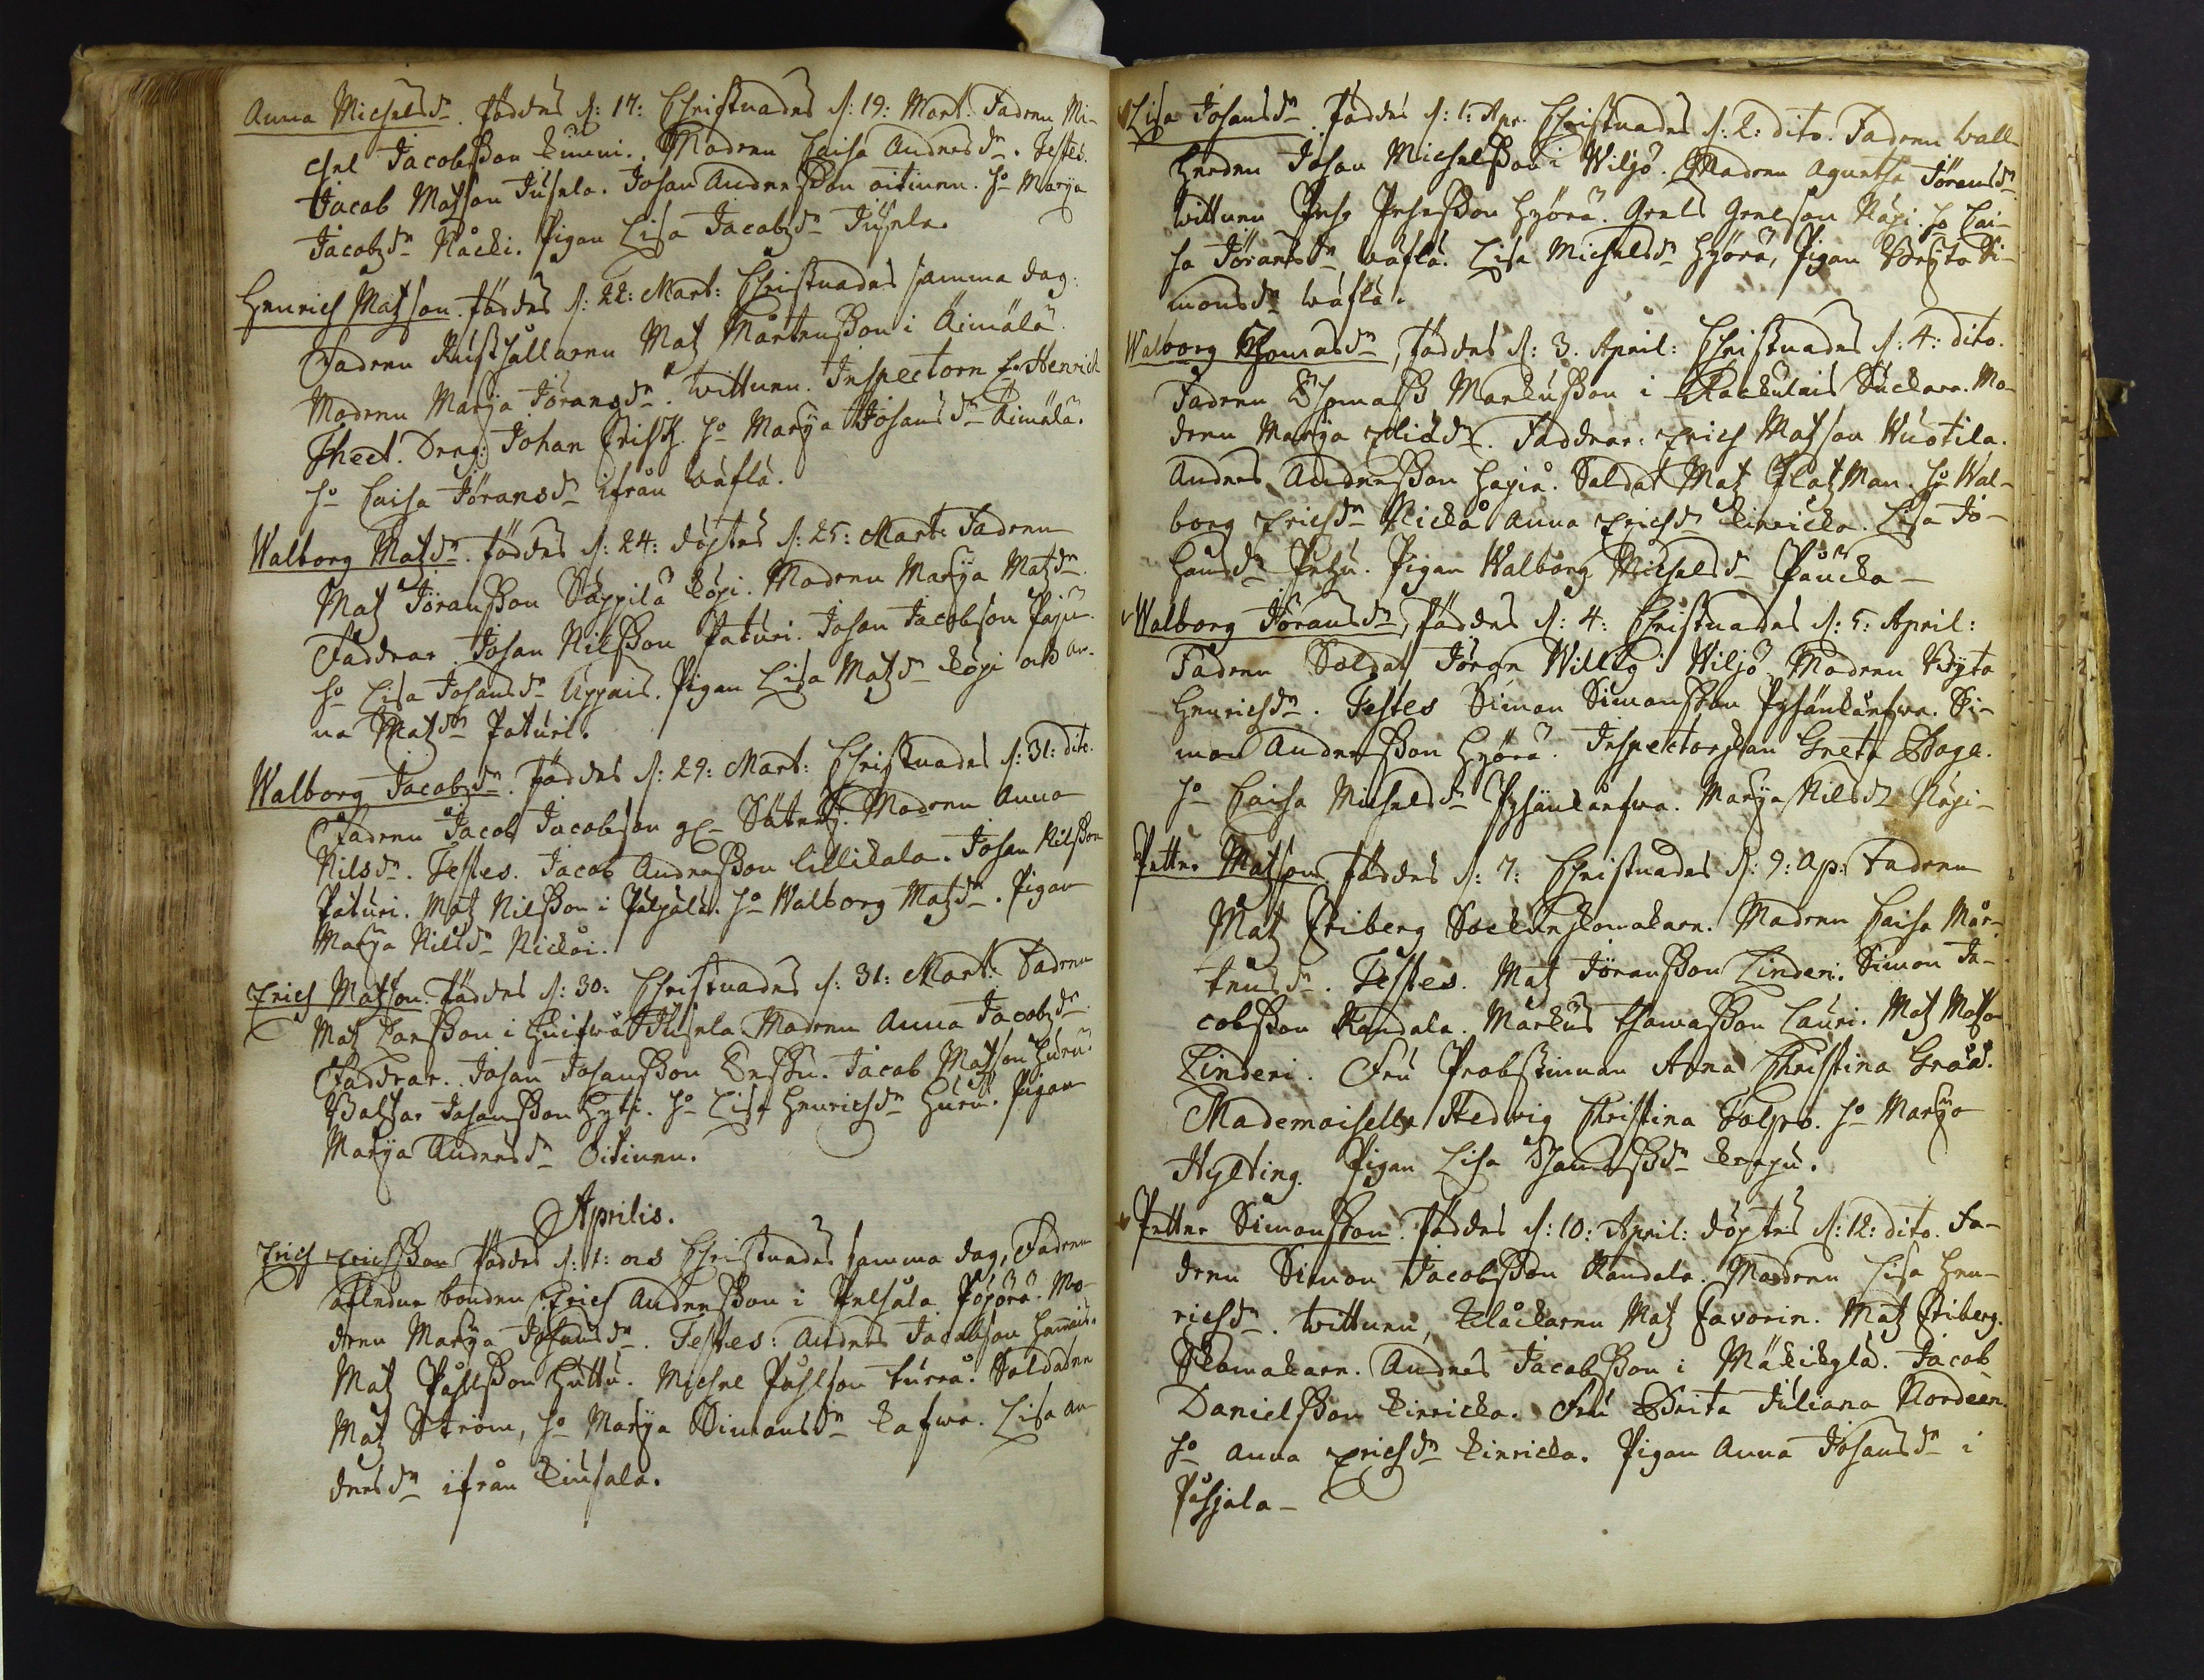 Anna Michelsdr. föddes d: 17: Christnades d: 19: Mart: Fadren Mi-
chel Jacobsson Kunni. Modren Caisa Andersdr. Testes.
Jacob Matsson Jusela. Johan Andersson oitinen. ho Marja
Jacobsdr Kåcki. Pigan Lisa Jacobsdr Jusela.
Henrich Matsson. föddes d: 22: Mart: Christnades samma dag.
Fadren Rusthållaren Mats Mårtensson i Äimälä.
Modren Marja Jöransdr. wittnen. Inspectoren Hr Henrich
Thect. Dreng: Johan Frisk. ho Marja Johansdr Äimälä.
ho Caisa Jöransdr ifrån wäflä.
Walborg Matsdr. föddes d: 24: döptes d: 25: Mart: Fadren
Mats Jöransson SäppiläKöpi. Modren Marja Matsdr.
Faddrar. Johan Nilsson Paturi. Johan Jacobson Paju.
ho Lisa Johansdr Uppais. Pigan Lisa Matsdr Köpi och An-
na Matsdr Paturi.
Walborg Jacobsdr. föddes d: 29: Mart: Christnades d: 31: dito.
Fadren Jacob Jacobson Modren Anna
Nilsdr. Testes. Jacob Andersson Cillikala. Johan Nilsson
Paturi. Mats Nilsson i Påljala. ho Walborg Matsdr. Pigan
Marja Nilsdr Nickåi.
Erich Matsson. föddes d: 30: Christnades d: 31: Mart: Fadren
Mats Larsson i Huifwä Jusela. Modren Anna Jacobsdr.
Faddrar. Johan Johansson Enssu. Jacob Matsson Huru.
Baltzar Johansson Hyti. ho Lisa Henrichsdr Huru. Pigan
Marja Andersdr Oitinen.
Aprilis.
Erich Erichsson föddes d: 1: och Christnades samma dag, Fadren
afledne bonden Erich Andersson i Pelsåla Pöjörä. Mo-
dren Marja Johansdr. Testes: Anders Jacobson Hannis.
Mats Påhlsson Huttu. Michel Påhlson turra. Soldaten
Mats Ström, ho Marja Simonsdr Kafwa. Lisa An-
dersdr ifrån Kiusala.
Lisa Johansdr. föddes d: 1: Apr. Christnades d: 2: dito. Fadren wall-
herden Johan Michelsson i Wiljo. Modren Agnetha Jöransdr
wittnen Pehr Pehrsson Hyörä. Grels Grelson Näpi. ho Cai-
sa Jöransdr wäflä. Lisa Michelsdr Hyörä, Pigan Bryta Si-
monsdr wäflä.
Walborg Thomasdr, föddes d: 3. April: Christnades d: 4: dito.
Fadren Thomass Markusson i Kackulais Suckari. Mo-
dren Marja Eliedr. Faddrar: Erich Matson Wuotila.
Anders Andersson Hapia. Soldat Mats Flatzman. ho Wal-
borg Erichsdr Nickå Anna Erichsdr Kiricka. Lisa Jo-
hansdr Petzu. Pigan Walborg Michelsdr Paucka
Walborg Jöransdr, föddes d: 4: Christnades d: 5: April:
Fadren Soldat Jören Willig i Wiljo Modren Bryta
Henrichsdr. Testes Simon Simonsson Pyhänkårfwa. Si-
mon Andersson Hyörä. Inspectorskan Greta Boga.
ho Caisa Michelsdr Pyhänkårfwa. Marja Nilsdr Näpi
Petter Matson föddes d: 7: Christnades d: 9: Ap: Fadren
Mats Friberg Sockenskomakare. Modren Caisa Mår-
tensdr. Testes. Mats Jöransson Linderi. Simon Ja-
cobsson Kandola. Markus Thomasson Lauri. Mats Matson
Linderi. Fru Probstinnan Anna Christina Graa.
Mademoiselle Hedvig Christina Polpro. ho Marja
Hylting. Pigan Lisa Thomassdr Krapu.
Petter Simonsson. föddes d: 10: April: döptes d: 12: dito. Fa-
dren Simon Jacobsson Kandola. Modren Lisa Hen-
richsdr. wittnen, Klåckaren Mats Favorin. Mats Friberg.
Skomakare. Anders Jacobsson i Mäkikylä. Jacob
Danielsson Kiricka. Fru Brita Juliana Nordeen.
ho Anna Erichsdr Kiricka. Pigan Anna Johansdr i
Påhjala